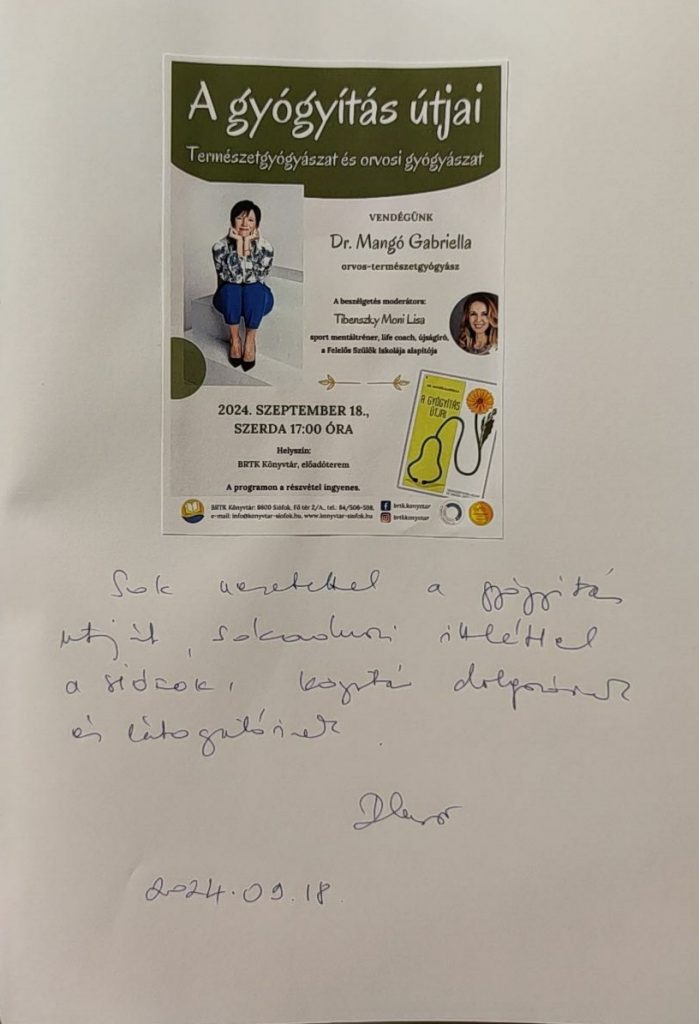 A gyógyítás útjai
Természetgyógyászat és orvosi gyógyászat
VENDÉGÜNK
Dr. Mangó Gabriella
orvos-természetgyógyász
A beszélgetés moderátora:
Tibenszky Moni Lisa
sport mentáltréner, life coach, újságíró,
a Felelős Szülők Iskolája alapítója
2024. SZEPTEMBER 18.,
SZERDA 17:00 ÓRA
Helyszín:
BRTK Könyvtár, előadóterem
A programon a részvétel ingyenes.
A GYÓGYÍTÁS
ÚTJAI
BRTK Könyvtár: 8600 Siófok, Fő tér 2/A., tel.: 84/506-598,
e-mail: info@konyvtar-siofok.hu, www.konyvtar-siofok.hu
brtk.konyvtar
brtkkonyvtar
Sok szeretettel a gyógyítás
útját,
a siófoki könyvtár dolgozóinak
és látogatóinak
2024.09.18.